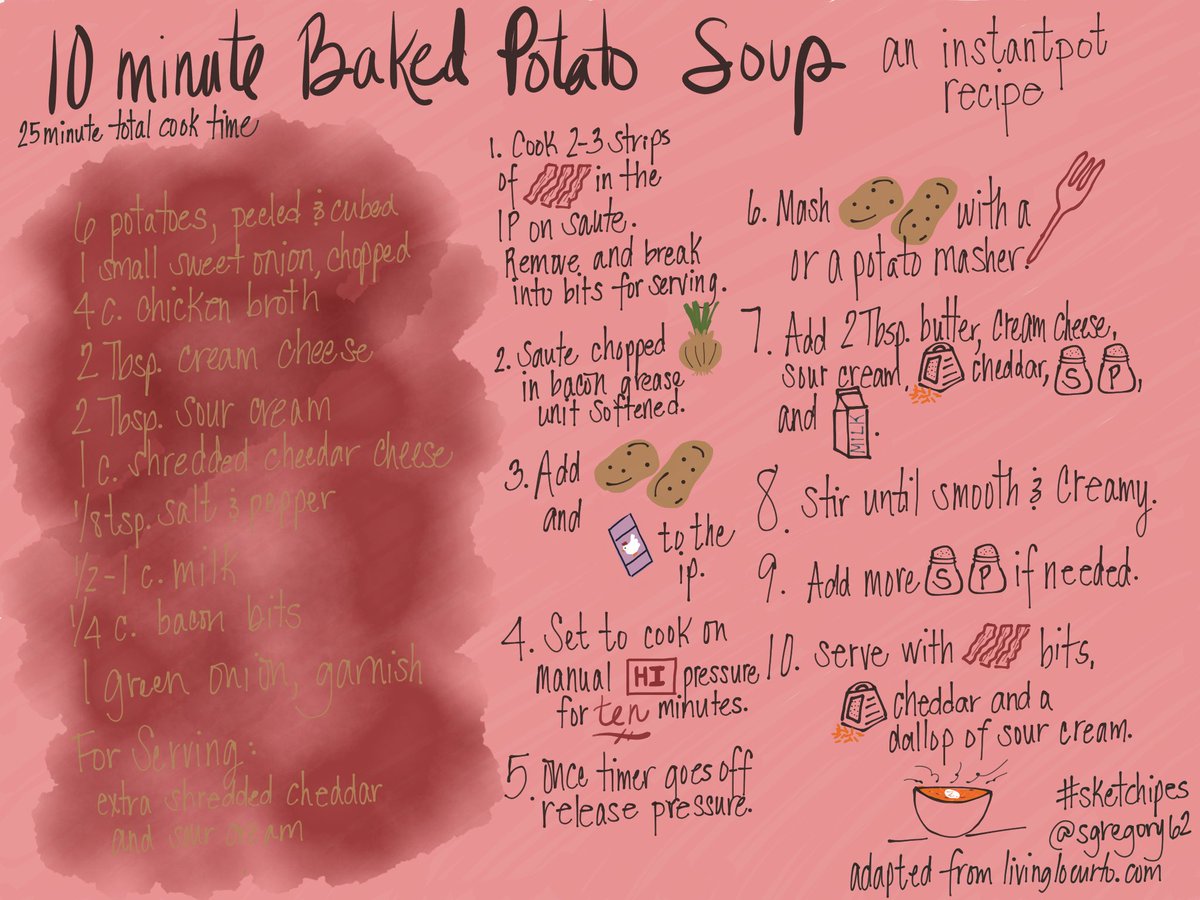 10 minute Baked Potato Soup
an instantpot
recipe
25 minute total cook time
6 potatoes, peeled & cubed
1 small sweet onion, chopped
4 c. chicken broth
2 Tbsp. cream cheese
2 Tbsp. sour cream
1 c. shredded cheedar cheese
1/8 tsp. salt & pepper
1/2-1 c. milk
1/4 c. bacon bits
1 green onion, garnish
For Serving:
extra shredded cheddar
and sour cream
1. Cook 2-3 strips
of in the
IP on saute.
Remove and break
into bits for serving.
2. Saute chopped
in bacon grease
unit softened.
3. Add
and to the
ip.
4. Set to cook on
manual HI pressure
for ten minutes.
5. once timer goes off
release pressure.
6. Mash with a
or a potato masher.
7. Add 2 Tbsp. butter, cream cheese,
sour cream, cheddar, S P,
and MILK.
8. Stir until smooth & creamy.
9. Add more S P if needed.
10. serve with bits,
cheddar and a
dallop of sour cream.
#sketchipes
@sgregory62
adapted from livinglocurto.com